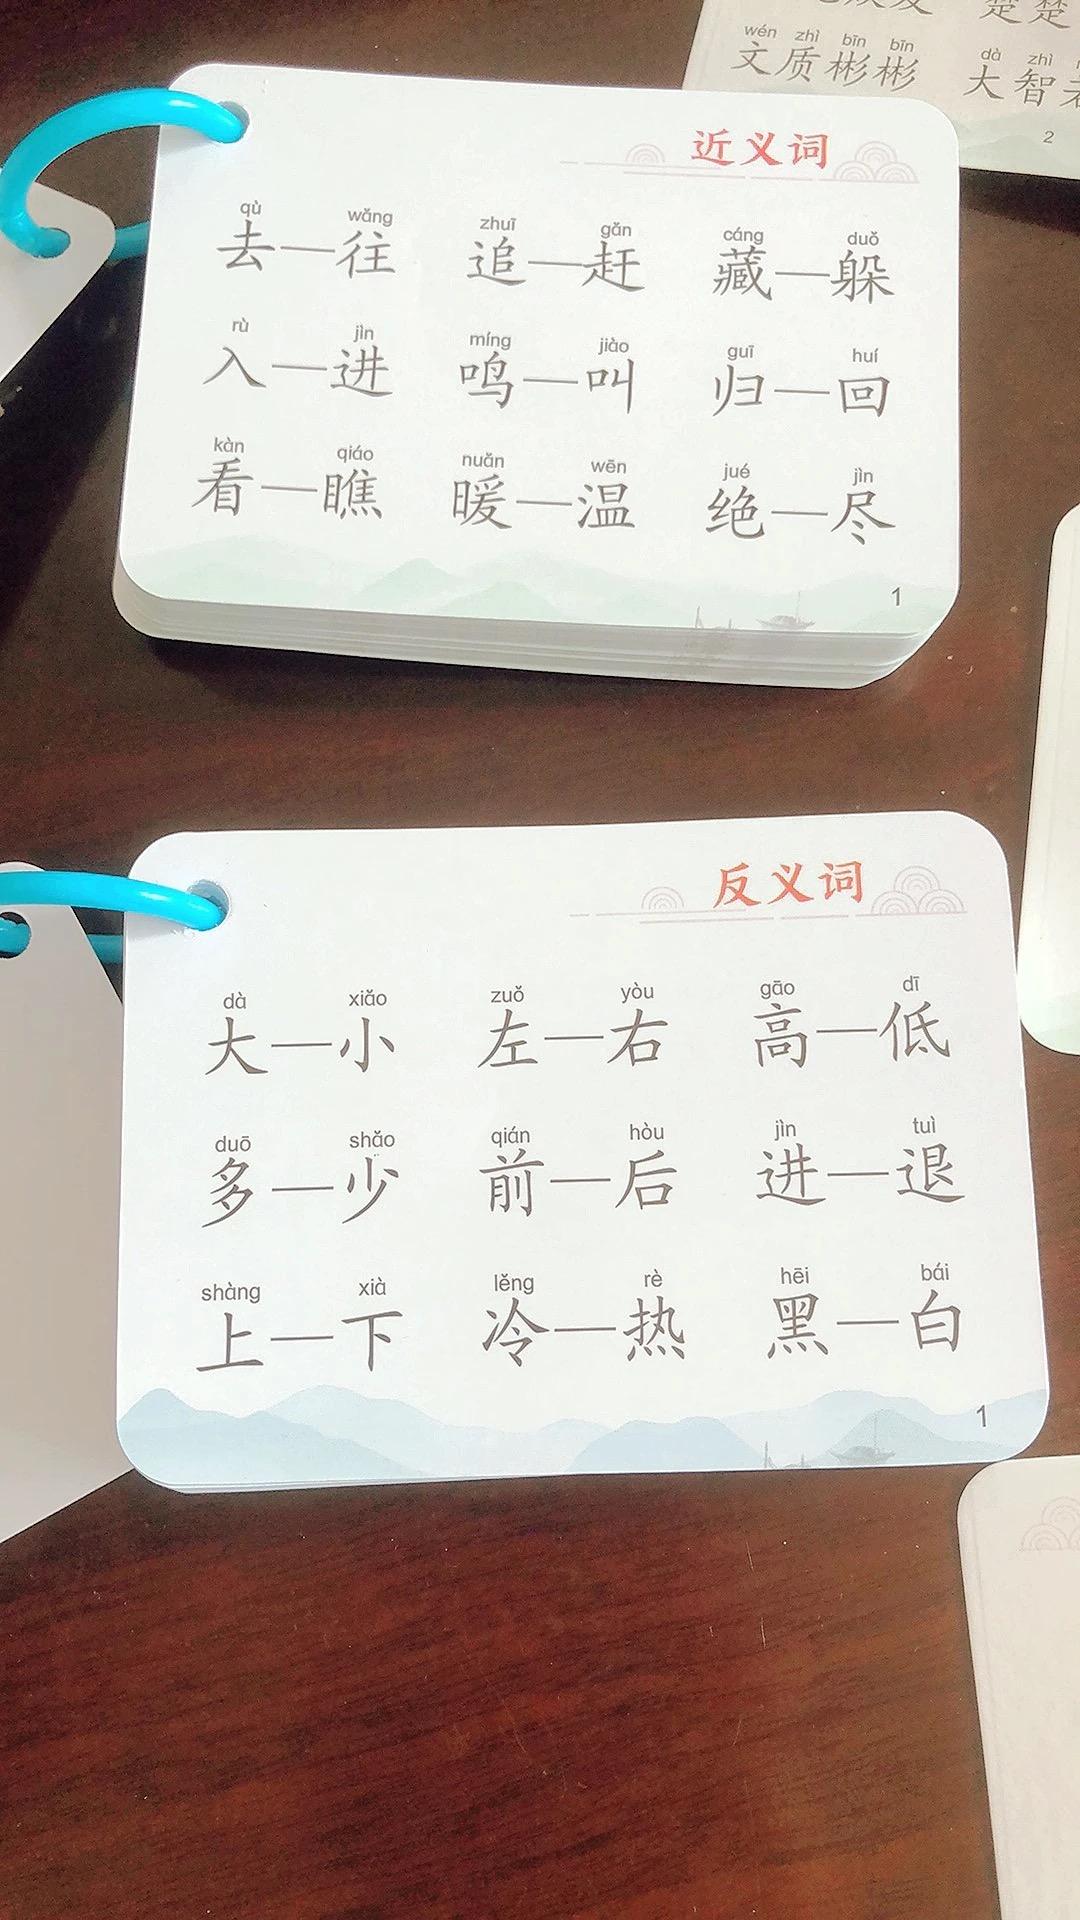 楚楚
wén zhì bīn bīn dà zhì
文质彬彬 大智
2
近义词
qù wǎng zhuī gǎn cáng duǒ
去—往 追—赶 藏—躲
rù jìn míng jiào guī huí
入—进 鸣—叫 归—回
kàn qiáo nuǎn wēn jué jìn
看—瞧 暖—温 绝—尽
1
反义词
dà xiǎo zuǒ yòu gāo dī
大—小 左—右 高—低
duō shǎo qián hòu jìn tuì
多—少 前—后 进—退
shàng xià lěng rè hēi bái
上—下 冷—热 黑—白
1